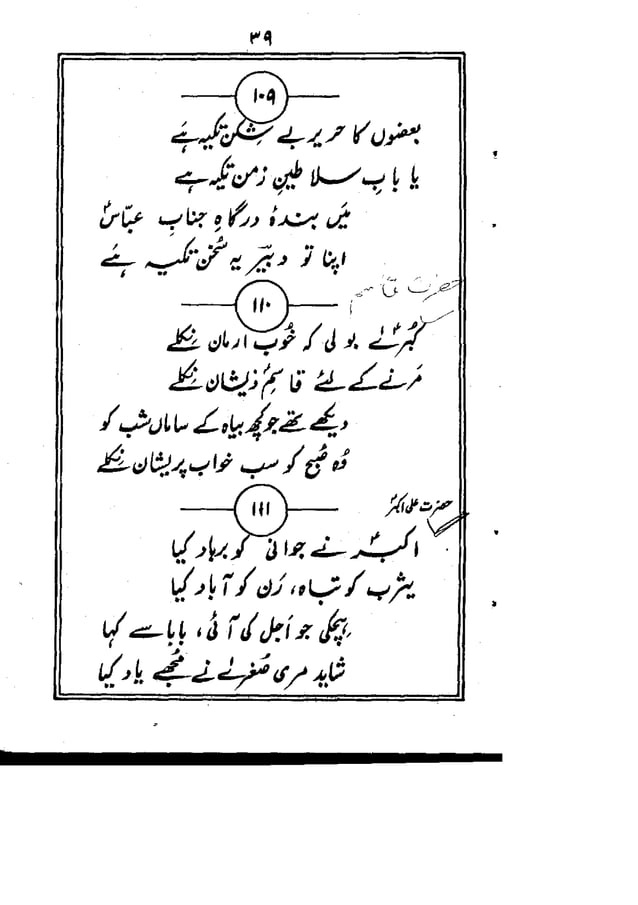 ۳۹
۱۰۹
بعضوں کا حریر بے شِکن تکیہ ہَے
یا بابِ سلاطینِ زمن تکیہ ہے
مَیں بندۂ درگاہِ جنابِ عبّاسؑ
اپنا تو دبیرؔ یہ سُخن تکیہ ہَے
حضرت قاسم
۱۱۰
کُبرٰےؑ بولی کہ خُوب ارمان نِکلے
مَرنے کے لئے قاسمِؑ ذیشان نِکلے
دیکھے تھے جو کچھ بیاہ کے ساماں شب کو
وُہ صُبح کو سب خواب پریشان نِکلے
۱۱۱
حضرت علی اکبرؑ
اکبرؑ نے جوانی کو برباد کیا
یثرب کو تباہ، رَن کو آباد کیا
ہِچکی جو اَجل کی آئی، بابا سے کہا
شاید مری صُغرٰے نے مُجھے یاد کیا